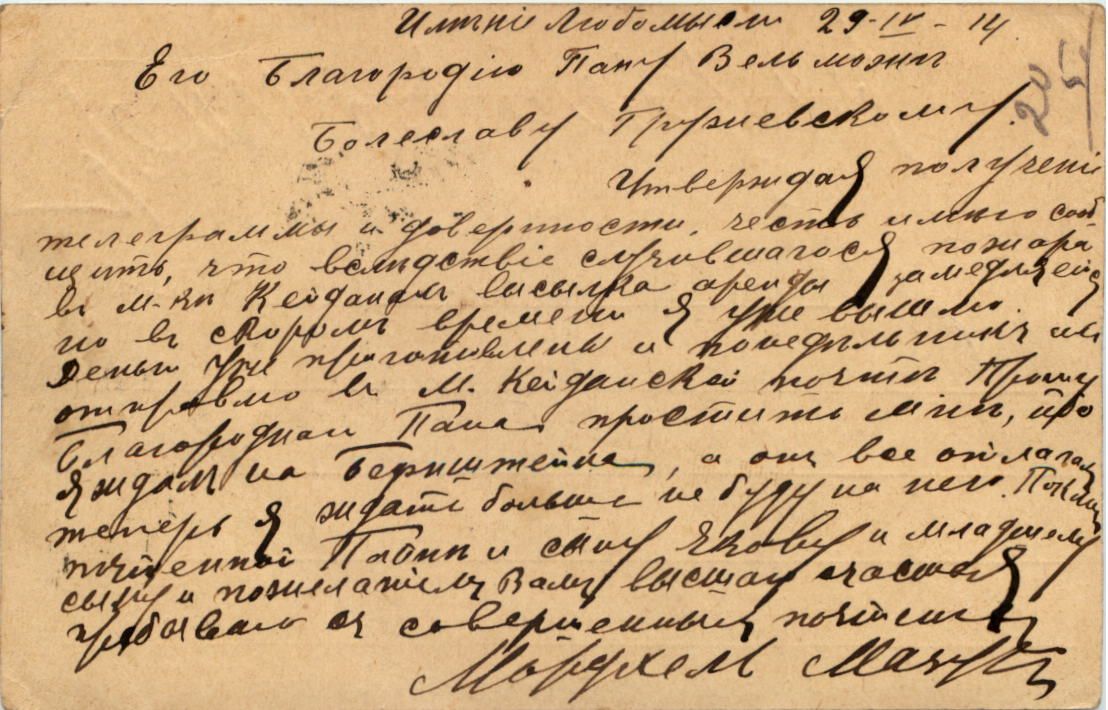 Имѣніе Любомысли 29-IV-14
Его Благородію Пану Вельможнѣ
Болеславу Гружевскому.
Утверждая полученіе
телеграммы и довѣрности, честь имѣю сооб
щить, что вслѣдствіе случившагося пожара
въ м-кѣ Кейданахъ высылка аренды замедляется
но въ скоромъ времени я уже вышлю.
Деньги уже приготовлены и понедѣльникъ
отправлю въ М. Кейданской почтѣ Прошу
Благородном Пана простить мнѣ, что
я ждалъ на Бернштейна, а онъ все отлагалъ
теперь я ждать больше не буду на него.
почтенной Пани и сыну Якову и младшему
сыну и пожеланіемъ Вамъ высшаго счастья
пребываю съ совершеннымъ почтеніемъ
Мордхель
20